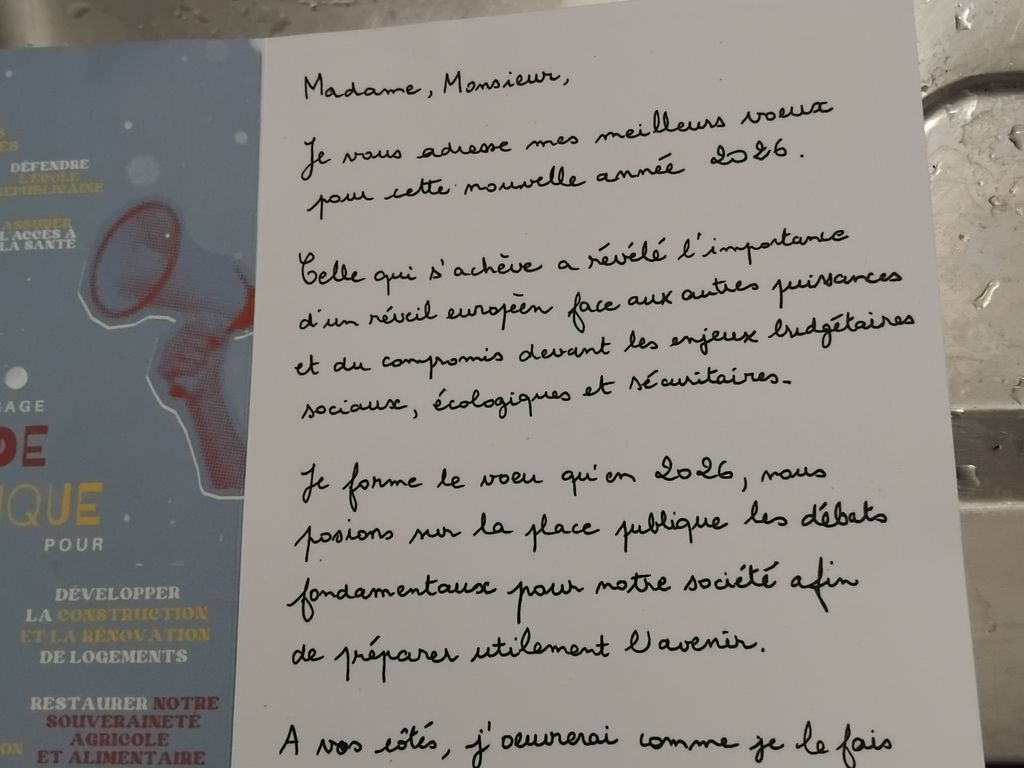 DÉFENDRE
L'ÉCOLE
RÉPUBLICAINE
ASSURER
L'ACCÈS À
LA SANTÉ
DE
IQUE
POUR
DÉVELOPPER
LA CONSTRUCTION
ET LA RÉNOVATION
DE LOGEMENTS
RESTAURER NOTRE
SOUVERAINETÉ
AGRICOLE
ET ALIMENTAIRE
Madame, Monsieur,
Je vous adresse mes meilleurs voeux
pour cette nouvelle année 2026.
Celle qui s'achève a révélé l'importance
d'un réveil europèen face aux autres puissances
et du compromis devant les enjeux budgétaires
sociaux, écologiques et sécuritaires.
Je forme le voeu qu'en 2026, nous
posions sur la place publique les débats
fondamentaux pour notre société afin
de préparer utilement l'avenir.
A vos côtés, j'oeuvrerai comme je le fais